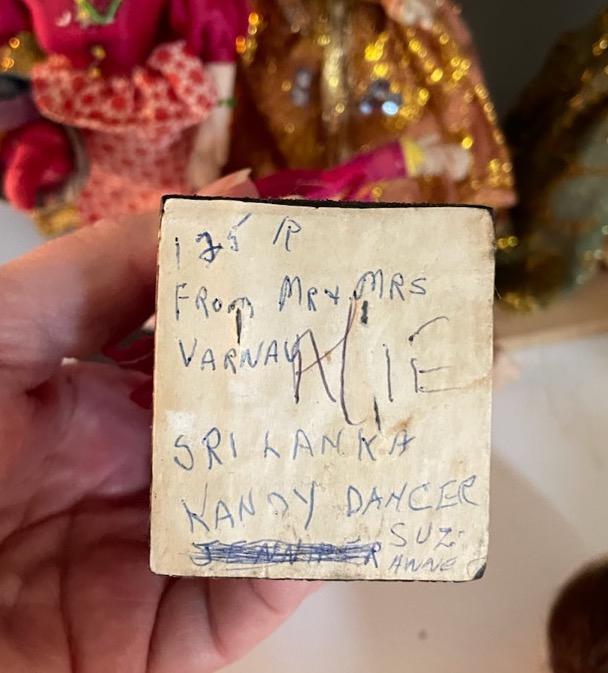 175 R
FROM MR & MRS
VARNAY
SRI LANKA
KANDY DANCER
JENNIFER SUZ-
ANNE